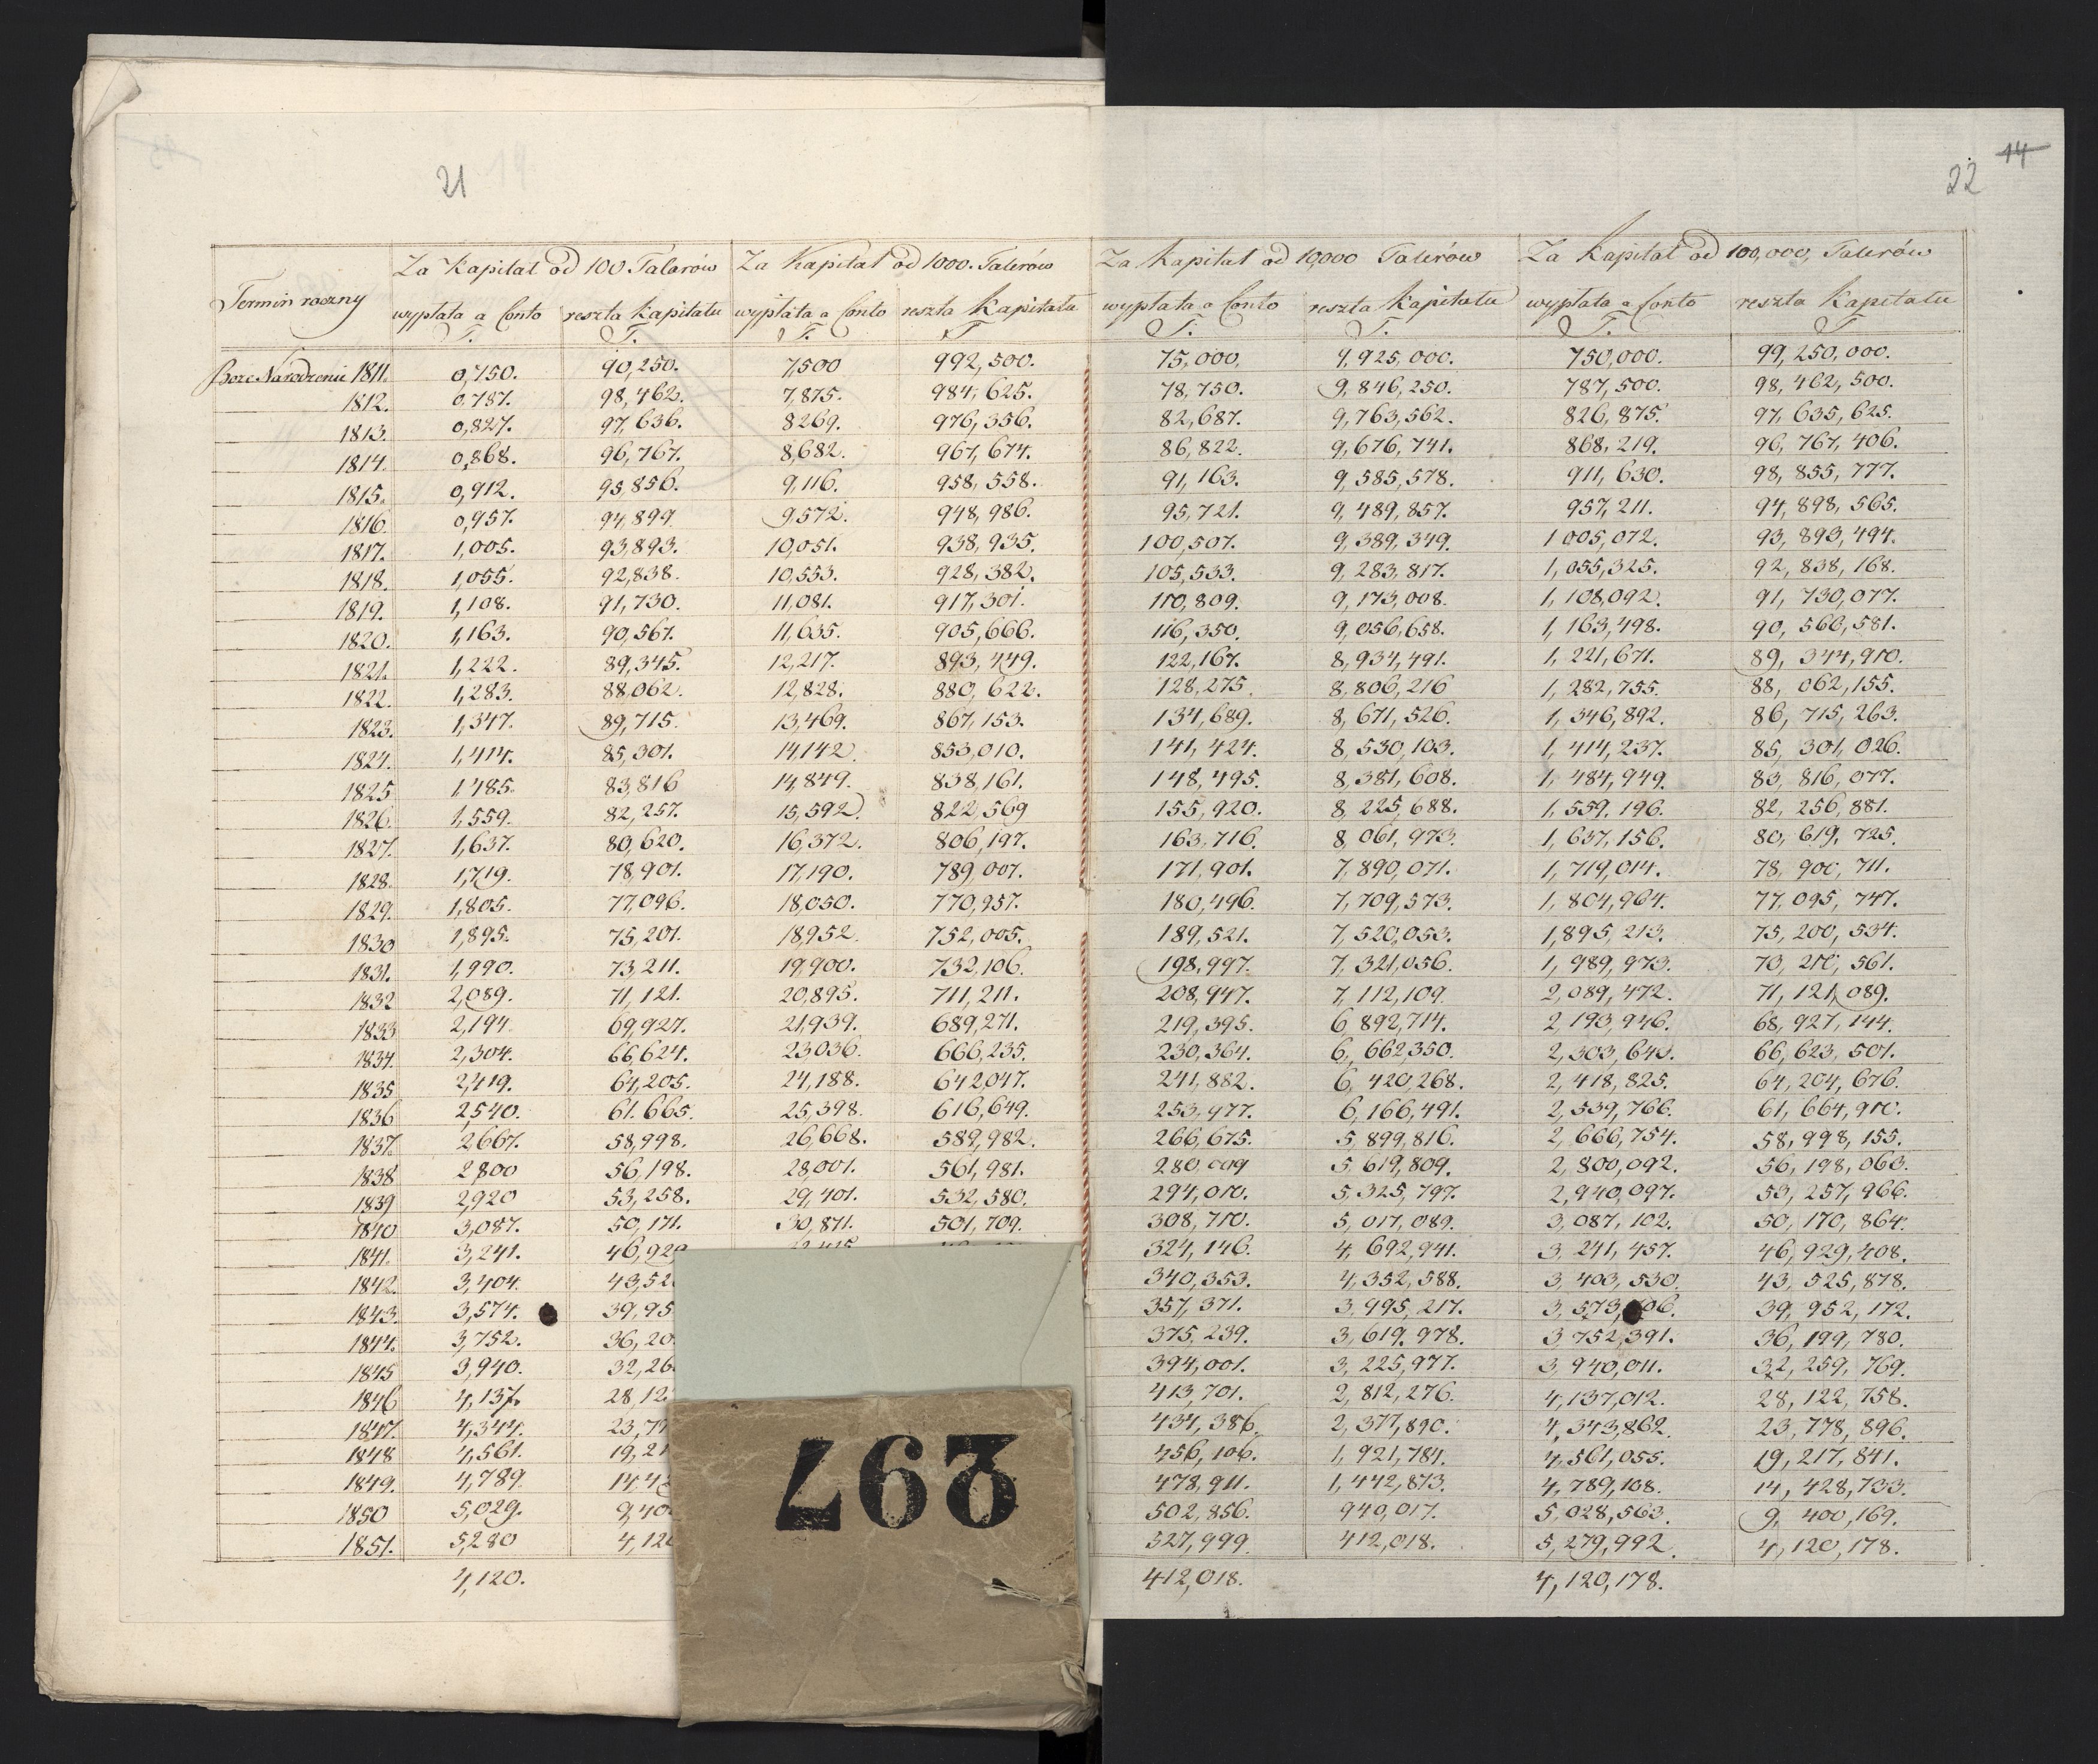 21
22 14
Za Kapitał od 100 Talarów Za Kapitał od 1000. Talerów Za Kapitał od 10,000 Talerów Za Kapitał od 100,000, Talerów
Termin roczny wypłata a Conto reszta Kapitału wypłata a Conto reszta Kapitału wypłata a Conto reszta Kapitału wypłata a Conto reszta Kapitału
T. T. T. T T. T. T. T
Boze Narodzenie 1811. 0,750. 90,250. 7,500 992,500. 75,000, 9,925,000. 750,000. 99,250,000.
1812. 0,787. 98,462. 7,875. 984,625. 78,750. 9,846,250. 787,500. 98,462,500.
1813. 0,827. 97,636. 8269. 976,356. 82,687. 9,763,562. 826,875. 97,635,625.
1814. 0,868. 96,767. 8,682. 967,674. 86,822. 9,676,741. 868,219. 96,767,406.
1815. 0,912. 95,856. 9,116. 958,558. 91,163. 9,585,578. 911,630. 98,855,777.
1816. 0,957. 94,899. 9,572. 948,986. 95,721. 9,489,857. 957,211. 94,898,565.
1817. 1,005. 93,893. 10,051. 938,935. 100,507. 9,389,349. 1005,072. 93,893,494.
1818. 1,055. 92,838. 10,553. 928,382. 105,533. 9,283,817. 1,055,325. 92,838,168.
1819. 1,108. 91,730. 11,081. 917,301. 110,809. 9,173,008. 1,108,092. 91,730,077.
1820. 1,163. 90,567. 11,635. 905,666. 116,350. 9,056,658. 1,163,498. 90,566,581.
1821. 1,222. 89,345. 12,217. 893,449. 122,167. 8,934,491. 1,221,671. 89,344,910.
1822. 1,283. 88,062. 12,828. 880,622. 128,275. 8,806,216 1,282,755. 88,062,155.
1823. 1,347. 89,715. 13,469. 867,153. 134,689. 8,671,526. 1,346,892. 86,715,263.
1824. 1,414. 85,301. 14,142. 853,010. 141,424. 8,530,103. 1,414,237. 85,301,026.
1825 1,485. 83,816 14,849. 838,161. 148,495. 8,381,608. 1,484,949. 83,816,077.
1826. 1,559. 82,257. 15,592. 822,569 155,920. 8,225,688. 1,559,196. 82,256,881.
1827. 1,637. 80,620. 16,372. 806,197. 163,716. 8,061,973. 1,637,156. 80,619,725.
1828. 1,719. 78,901. 17,190. 789,007. 171,901. 7,890,071. 1,719,014. 78,900,711.
1829. 1,805. 77,096. 18,050. 770,957. 180,496. 7,709,573. 1,804,964. 77,095,747.
1830 1,895. 75,201. 18,952. 752,005. 189,521. 7,520,053. 1,895,213. 75,200,534.
1831. 1,990. 73,211. 19,900. 732,106. 198,997. 7,321,056. 1,989,973. 70,210,561.
1832 2,089. 71,121. 20,895. 711,211. 208,947. 7,112,109. 2,089,472. 71,121,089.
1833 2,194. 69,927. 21,939. 689,271. 219,395. 6,892,714. 2,193,946. 68,927,144.
1834. 2,304. 66,624. 23,036. 666,235. 230,364. 6,662,350. 2,303,640. 66,623,501.
1835 2,419. 64,205. 24,188. 642,047. 241,882. 6,420,268. 2,418,825. 64,204,676.
1836 2,540. 61.665. 25,398. 616,649. 253,977. 6,166,491. 2,539,766. 61,664,910.
1837. 2,667. 58,998. 26,668. 589,982. 266,675. 5,899,816. 2,666,754. 58,998,155.
1838 2800 56,198. 28,001. 561,981. 280,009 5,619,809. 2,800,092. 56,198,063.
1839 2,920 53,258. 29,401. 532,580. 294,010. 5,325,797. 2,940,097. 53,257,966.
1840 3,087. 50,171. 30,871. 501,709. 308,710. 5,017,089. 3,087,102. 50,170,864.
1841. 3,241. 46,929 324,146. 4,692,941. 3,241,457. 46,929,408.
1842. 3,404. 43,52 340,353. 4,352,588. 3,403,530. 43,525,878.
1843. 3,574. 39,95 357,371. 3,995,217. 39,952,172.
1844. 3,752. 36,20 375,239. 3,619,978. 3,752,391. 36,199,780.
1845 3,940. 32,26 394,001. 3,225,977. 3,940,011. 32,259,769.
1846 4,137. 28,12 413,701. 2,812,276. 4,137,012. 28,122,758.
1847. 4,344. 23,77 434,386. 2,377,890. 4,343,862. 23,778,896.
1848 4,561. 19,21 456,106. 1,921,784. 4,561,055. 19,217,841.
1849. 4,789. 14,42 478,911. 1,442,873. 4,789,108. 14,428,733.
1850 5,029. 9,40 502,856. 940,017. 5,028,563. 9,400,169.
1851. 5,280 4,120 527,999. 412,018. 5,279,992. 4,120,178.
4,120. 412,018. 4,120,178.
297